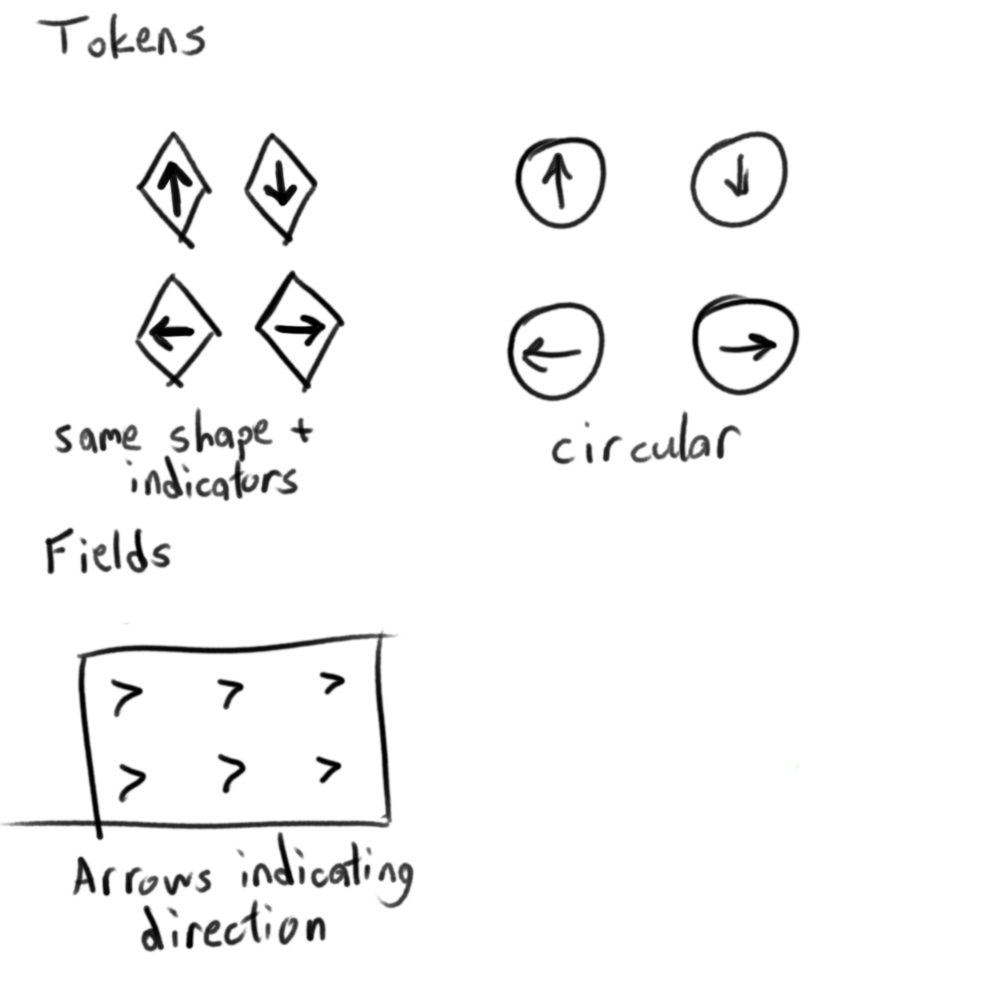 Tokens
same shape +
indicators
circular
Fields
Arrows indicating
direction